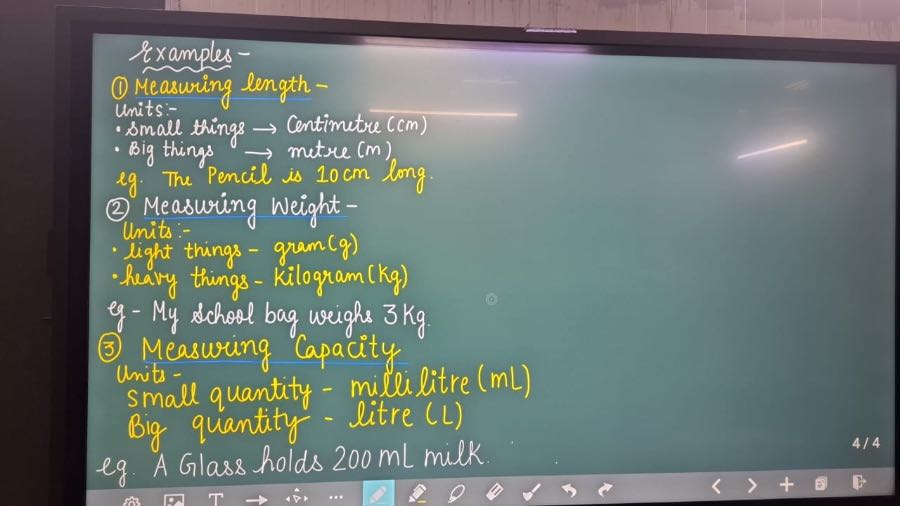 Examples -
① Measuring length -
Units:-
• Small things → Centimetre (cm)
• Big things → metre (m)
eg. The Pencil is 10 cm long.
② Measuring Weight -
Units:-
• light things - gram (g)
• heavy things - Kilogram (Kg)
eg - My School bag weighs 3 Kg.
③ Measuring Capacity
Units -
Small quantity - millilitre (mL)
Big quantity - litre (L)
eg. A Glass holds 200 mL milk.
4/4